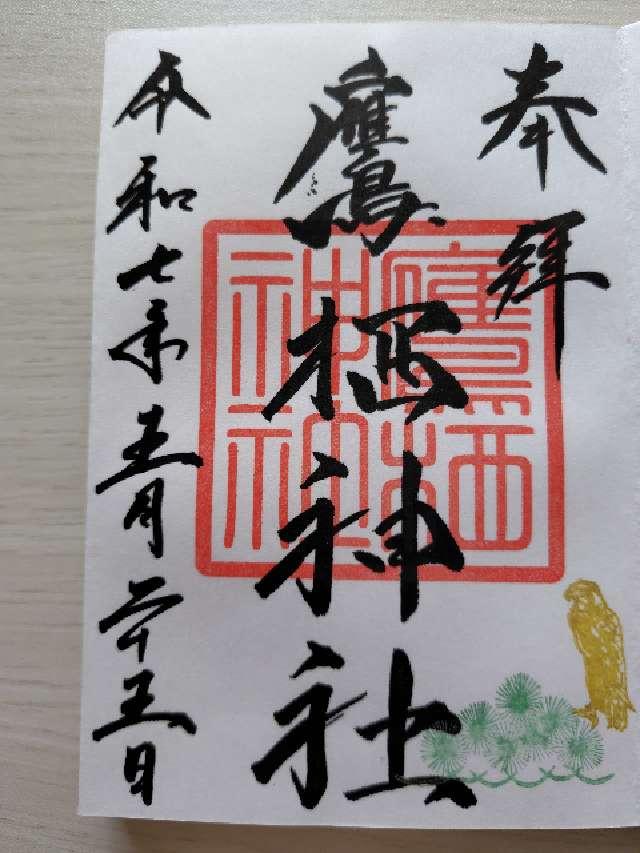 奉拝
鷹栖神社
令和七年五月二十五日